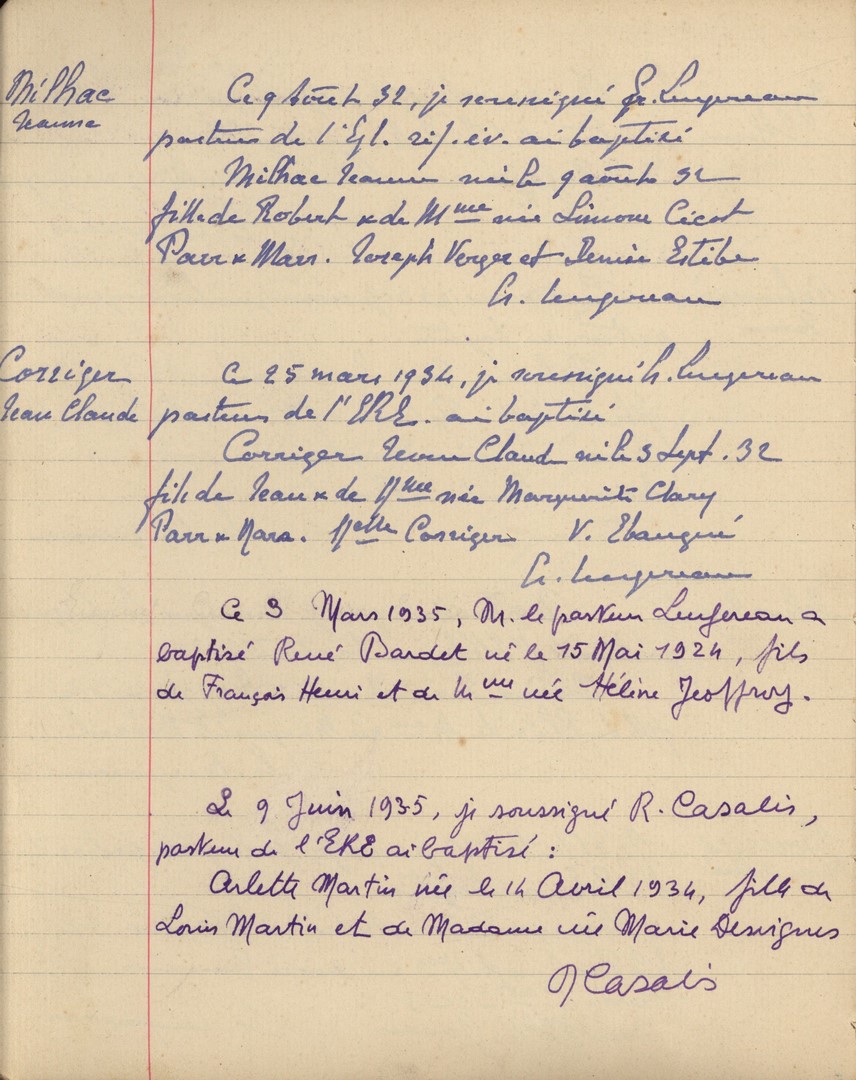 Milhac
Jeanne
Ce 9 Août 32, je soussigné Lengereau
pasteur de l'Egl. réf. év. ai baptisé
Milhac Jeanne née le 9 août 32
fille de Robert & de Mme née Simone Cicot
Parr & Marr. Joseph Verger et Denise Estèbe
Lengereau
Corriger
Jean Claude
Ce 25 mars 1934, je soussigné Lengereau
pasteur de l'ERE. ai baptisé
Corriger Jean Claude né le 3 Sept. 32
fils de Jean & de Mme née Marguerite Clary
Parr & Mara. Melle Corriger V.
Lengereau
Ce 3 Mars 1935, M. le pasteur Lengereau a
baptisé René Bardet né le 15 Mai 1924, fils
de François Henri et de Mme née Hélène Jeoffroy.
Le 9 Juin 1935, je soussigné R. Casalis,
pasteur de l'ERE ai baptisé :
Arlette Martin née le 14 Avril 1934, fille de
Louis Martin et de Madame née Marie Desvignes
R Casalis